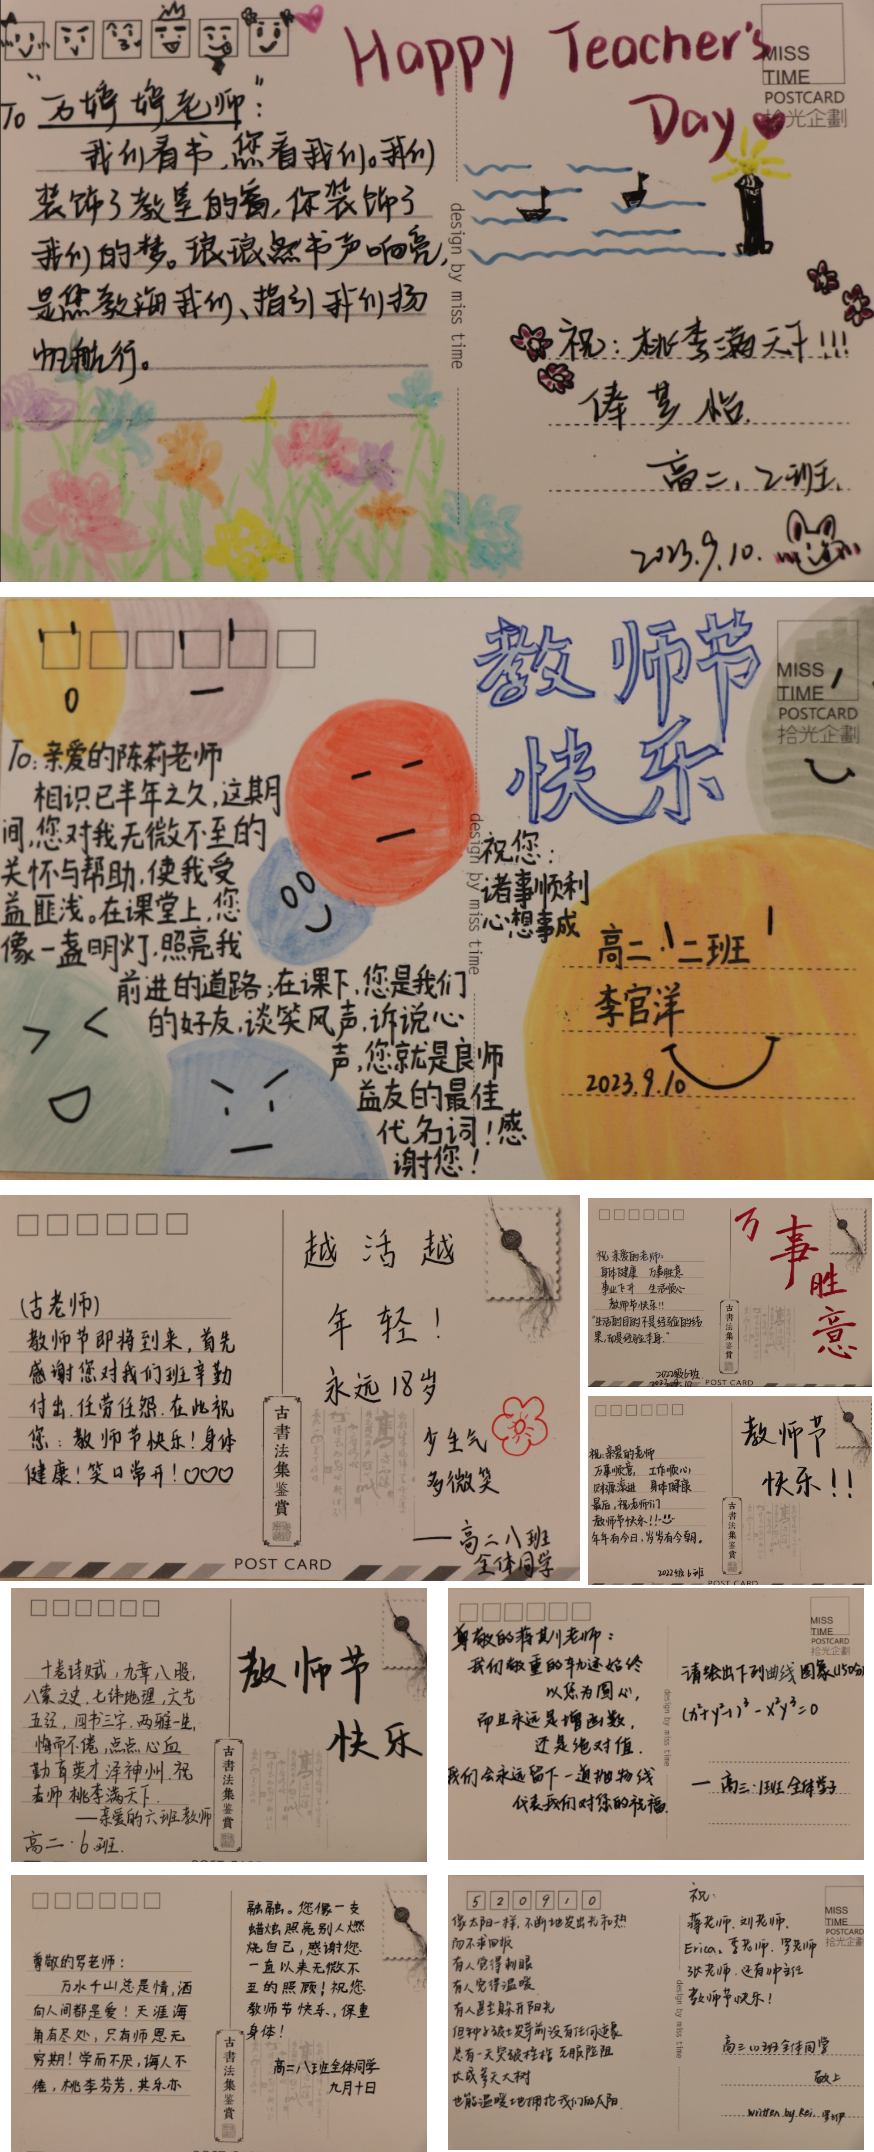 Happy Teacher's
Day
MISS
TIME
POSTCARD
拾光企劃
To "万婷婷老师":
我们看书,您看我们。我们
装饰了教室的窗,你装饰了
我们的梦。琅琅然书声响亮,
是您教诲我们、指引我们扬
帆航行。
design by miss time
祝:桃李满天下!!!
高二、2班
2023.9.10.
教师节
快乐
MISS
TIME
POSTCARD
拾光企劃
To:亲爱的陈莉老师
相识已半年之久,这期
间,您对我无微不至的
关怀与帮助,使我受
益匪浅。在课堂上,您
像一盏明灯,照亮我
前进的道路;在课下,您是我们
的好友,谈笑风声,诉说心
声,您就是良师
益友的最佳
代名词!感
谢您!
design by miss time
祝您:
诸事顺利
心想事成
高二·二班
李官洋
2023.9.10
(古老师)
教师节即将到来,首先
感谢您对我们班辛勤
付出.任劳任怨.在此祝
您:教师节快乐!身体
健康!笑口常开!♡♡♡
越活越
年轻!
永远18岁
少生气
多微笑
——高二八班
全体同学
古書法集鉴賞
POST CARD
万事胜意
祝亲爱的老师:
身体健康 万事胜意
事业飞升 生活顺心
教师节快乐!!
"生活的目的不是经验的结
果,而是经验本身."
2022级6班
古書法集鉴賞
POST CARD
教师节
快乐!!
祝:亲爱的老师
万事顺意, 工作顺心
财源滚进 身体健康
最后,祝老师们
教师节快乐!!
年年有今日,岁岁有今朝。
2022级6班
古書法集鉴賞
POST CARD
教师节
快乐
十卷诗赋,九章八股,
八索文史,七纬地理,六艺
五经,四书三字,两雅一生,
悔而不倦,点点心血
勤育英才泽神州.祝
老师桃李满天下.
——亲爱的六班教师
高二·6班.
古書法集鉴賞
尊敬的蒋其川老师:
我们敬重的轨迹始终
以您为圆心,
而且永远是增函数,
还是绝对值.
我们会永远留下一道抛物线
代表我们对您的祝福.
design by miss time
MISS
TIME
POSTCARD
拾光企劃
请绘出下列曲线图象(150分)
(x²+y²-1)³-x²y³=0
—高三·1班全体学子
尊敬的罗老师:
万水千山总是情,洒
向人间都是爱!天涯海
角有尽处,只有师恩无
穷期!学而不厌,诲人不
倦,桃李芬芳,其乐亦
融融。您像一支
蜡烛照亮别人燃
烧自己,感谢您
一直以来无微不
至的照顾!祝您
教师节快乐,保重
身体!
高二八班全体同学
九月十日
古書法集鉴賞
520910
像太阳一样,不断地发出光和热
而不求回报
有人觉得刺眼
有人觉得温暖
有人甚至躲开阳光
但种子破土发芽前没有任何迹象
总有一天突破桎梏 无服险阻
长成参天大树
也能温暖地拥抱我们的太阳.
design by miss time
MISS
TIME
POSTCARD
拾光企劃
祝:
蒋老师.刘老师.
Erica、李老师.罗老师
张老师.还有师主任
教师节快乐!
高三(1)班全体同学
敬上
written by Rei.